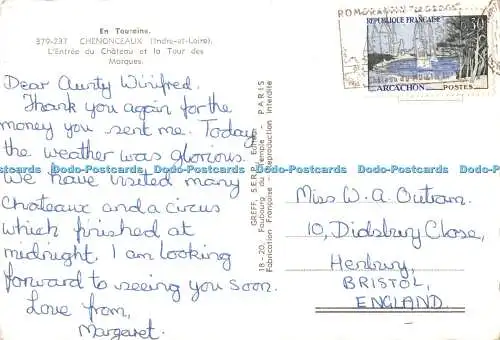 En Touraine.
379-237 CHENONCEAUX (Indre-et-Loire).
L'Entrée du Château et la Tour des
Marques.
Dear Aunty Winifred,
Thank you again for the
money you sent me. Today
the weather was glorious.
We have visited many
Chateaux and a circus
which finished at
midnight. I am looking
forward to seeing you soon.
Love from,
Margaret.
GREFF, S.E.R.P., Editeur
18-20, Faubourg du Temple - PARIS
Fabrication Française - Reproduction Interdite
REPUBLIQUE FRANÇAISE
0,30
ARCACHON
POSTES
Miss W. A. Outram.
10, Didsbury Close,
Henbury,
BRISTOL,
ENGLAND.
Dodo-Postcards Dodo-Postcards Dodo-Postcards Dodo-Postcards Dodo-Postcards Dodo-Postcards